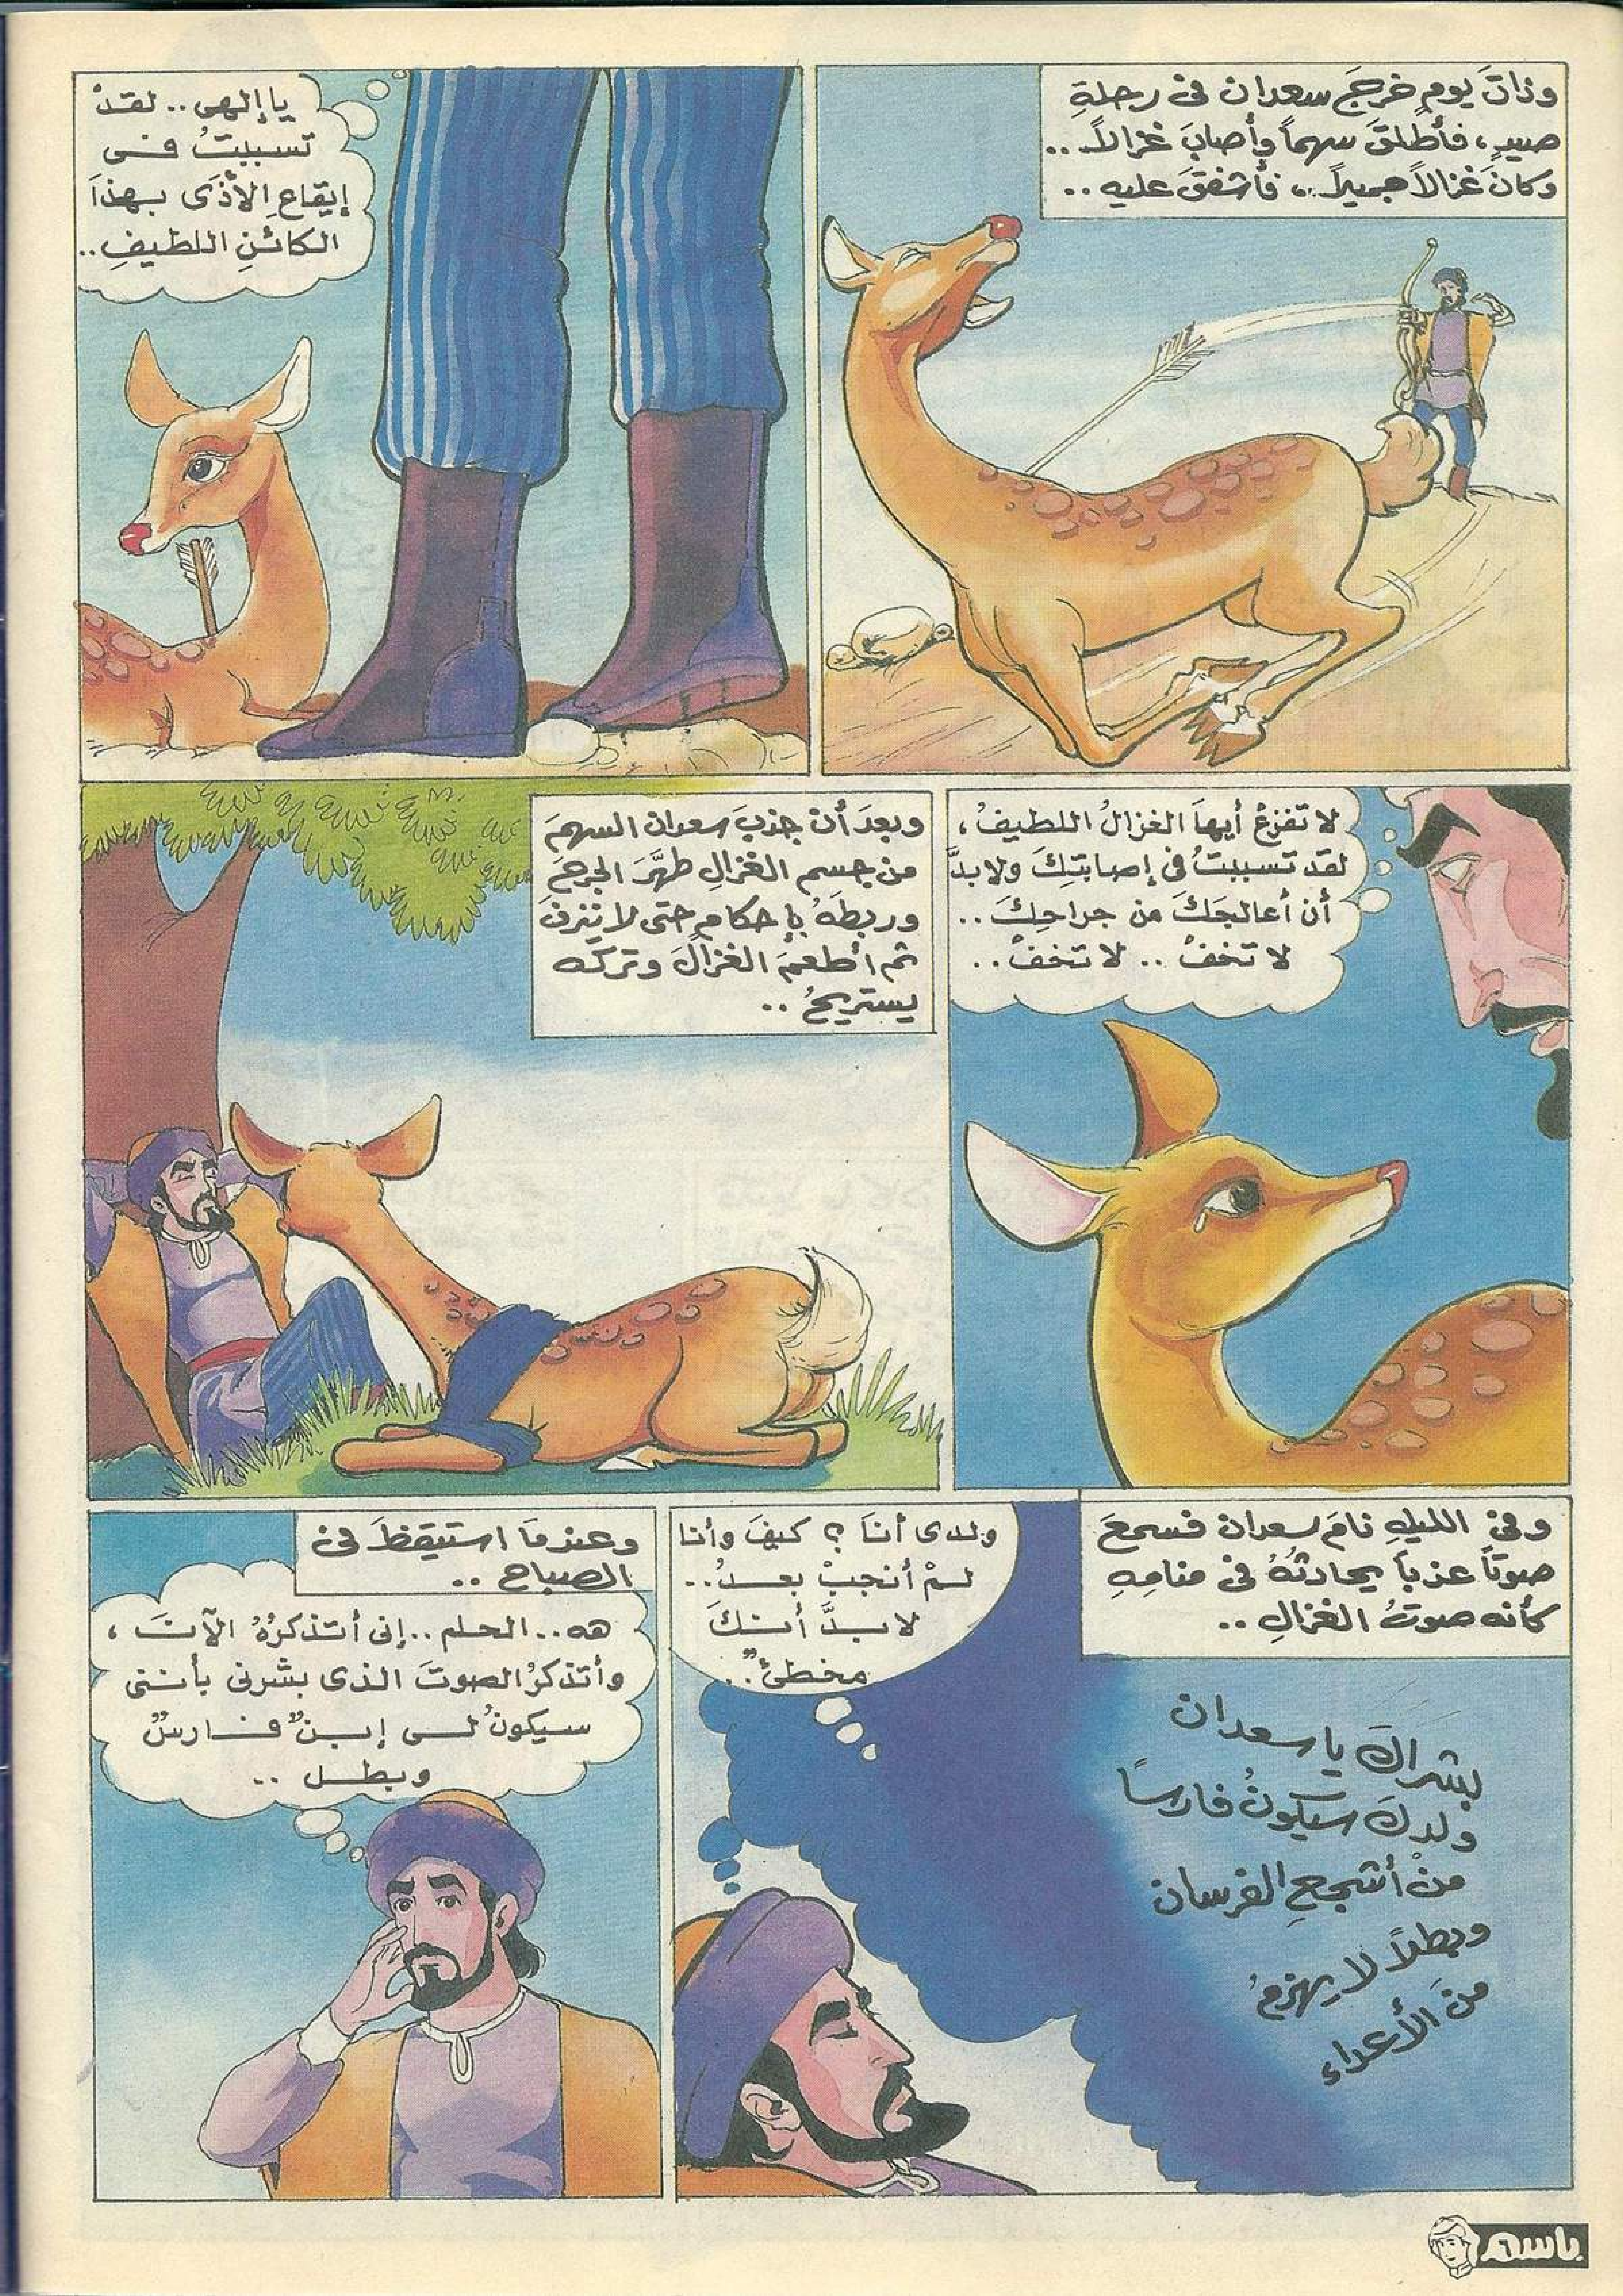 وذاتَ يومٍ خرجَ سعدان فى رحلةِ
صيدٍ، فأطلقَ سهماً وأصابَ غزالاً..
وكانَ غزالاً جميلاً.. فأشفقَ عليه..
ياإلهى.. لقدْ
تسببتُ فى
إيقاعِ الأذَى بهذا
الكائنِ اللطيفِ..
لا تفزعْ أيهاَ الغزالُ اللطيفُ،
لقد تسببتُ فى إصابتِكَ ولابدَّ
أن أعالجَكَ من جراحِكَ..
لا تخفْ.. لا تخفْ..
وبعدَ أن جذبَ سعدان السهمَ
من جسم الغزالِ طهَّرَ الجرحَ
وربطَهُ بإحكامٍ حتى لا تنزفَ
ثم أطعمَ الغزالَ وتركه
يستريحُ..
وفى الليلِ نامَ سعدان فسمعَ
صوتاً عذباً يحادثُهُ فى منامِهِ
كأنه صوتُ الغزالِ..
بشراكَ ياسعدان
ولدكَ سيكونُ فارساً
منْ أشجعِ الفرسان
وبطلاً لا يهزمُ
منَ الأعداءِ
ولدى أناَ؟ كيفَ وأنا
لمْ أنجبْ بعدُ..
لابدَّ أنكَ
مخطئٌ..
وعندماَ استيقظَ فى
الصباح..
هه.. الحلم.. إنى أتذكرُهُ الآنَ،
وأتذكرُ الصوتَ الذى بشرنى بأننى
سيكونُ لى إبنٌ فارسٌ
وبطل..
باسم